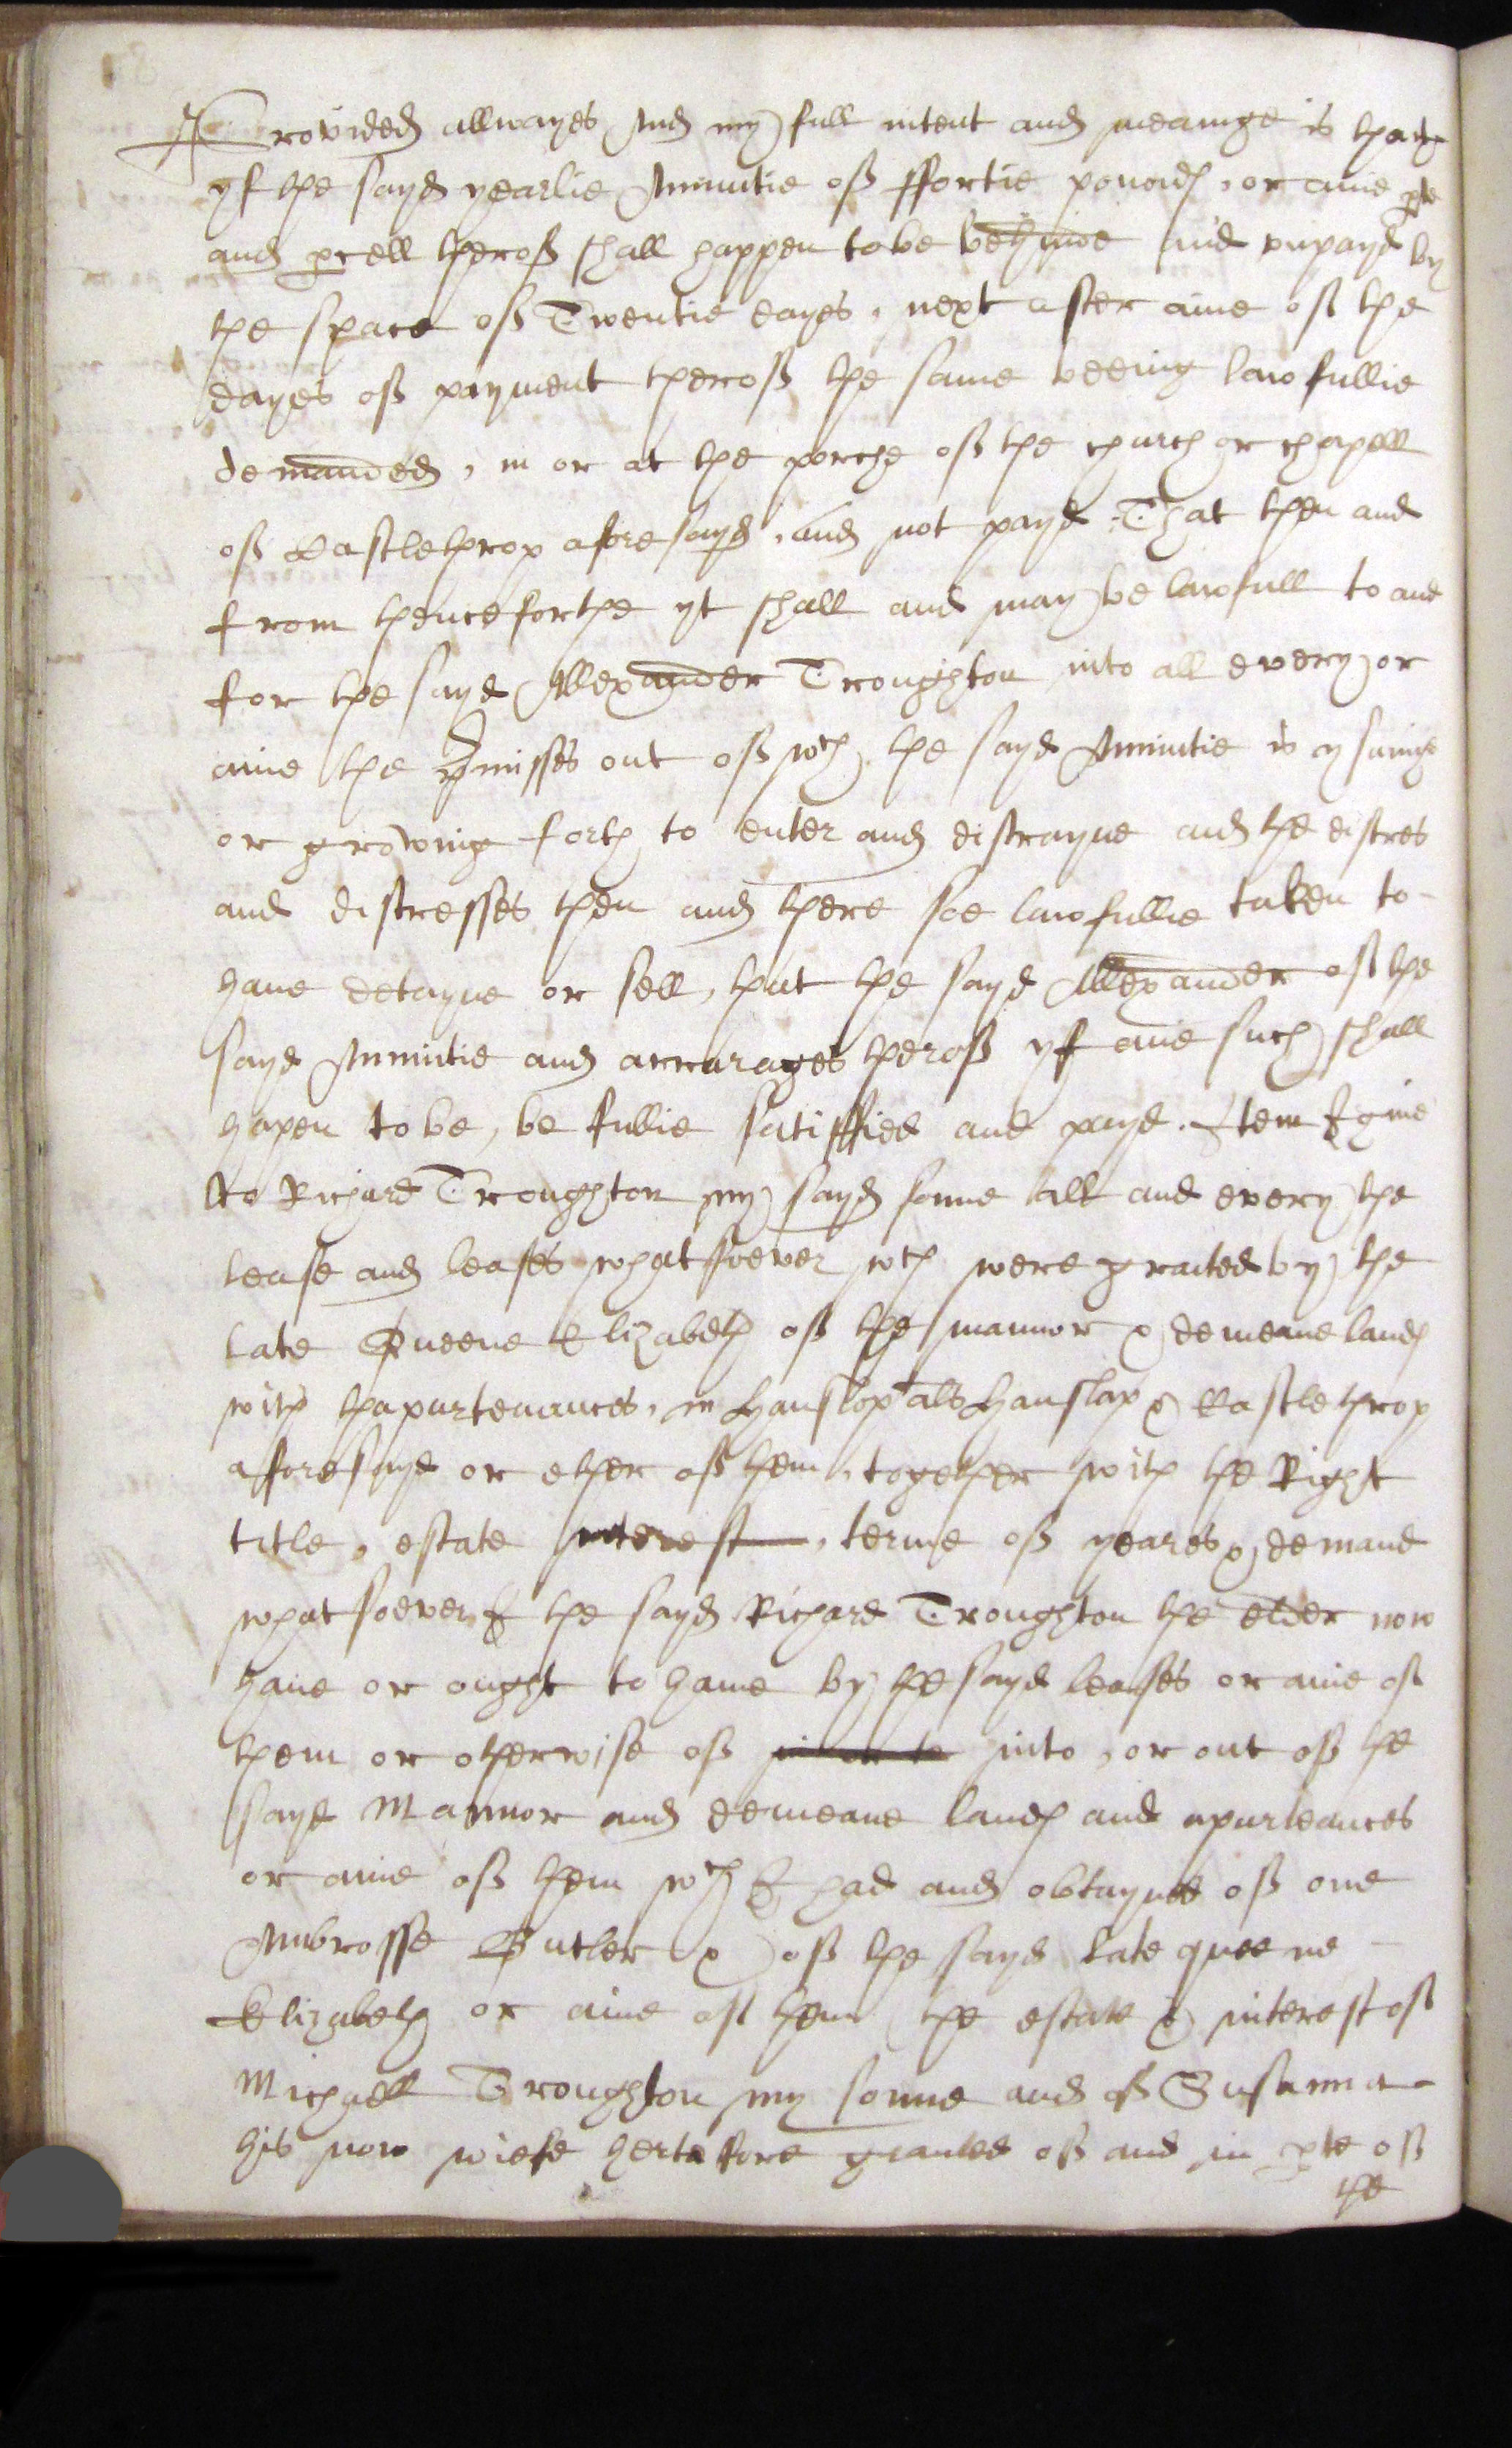 Provided allwayes And my full intent and meaninge is that
yf the sayd yearlie Annuitie off ffortie pounds, or anie pte
and pcell theroff shall happen to be behinde and unpayd by
the space off Twentie dayes, next after anie off the
dayes off payment theroff the same beeing lawfullie
demanded, in or at the porche off the church or chapell
off Castlethrop aforesayd, and not payd. That then and
from thenceforthe yt shall and may be lawfull to and
for the sayd Allexander Troughton into all every or
anie the pmisses out off wch the sayd Annuitie is ysuinge
or growing forth to enter and distrayne and the distres
and distresses then and there soe lawfullie taken to
have detayne or sell, that the sayd Allexander off the
sayd Annuitie and arrurages theroff yf anie such shall
hapen to be, be fullie satisffied and payd. Item I give
to Richard Troughton my sayd sonne all and every the
lease and leases whatsoever wch were granted by the
late Queene Elizabeth off the mannor & demeane lands
with thapurtenances, in Hanslop als Hanslap & Castlethrop
afforesayd or ether off them, together with the Right
title, estate interest, terme off yeares & demand
whatsoever I the sayd Richard Troughton the elder now
have or ought to have by the sayd leases or anie off
them or otherwise off into, or out off the
sayd Mannor and demeane lands and apurteances
or anie off them wch I had and obtayned off one
Ambrosse Butler & off the sayd late queene
Elizabeth or anie off them the estate & interest off
Michaell Troughton my sonne and off Susanna
his now wiefe hertofore granted off and in pte off
the